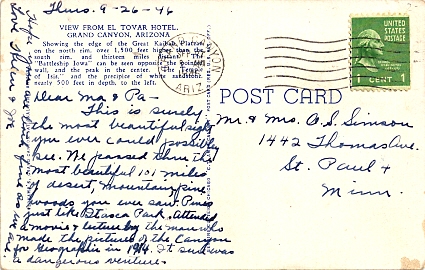 Thurs. 9-26-46
VIEW FROM EL TOVAR HOTEL,
GRAND CANYON, ARIZONA
Showing the edge of the Great Kaibab Plateau
on the north rim, over 1,500 feet higher than the
south rim, and thirteen miles distant. The
"Battleship Iowa" can be seen opposite the point
and the peak in the center.
of Isis," and the precipice of white sandstone,
nearly 500 feet in depth, to the left.
Dear Ma & Pa-
This is surely
the most beautiful sight
you ever could possibly
see. We passed thru the
most beautiful 101 miles
of desert, mountains, pine
woods you ever saw. Pines
just like Itasca Park. Attended
a movie & lecture by the man who
made the pictures of the Canyon
for Geographic in 1914. It sure was
a dangerous venture.
Love
ARIZ
POST CARD
U.S. POSTAGE
1 CENT 1
Mr. & Mrs. O. S. Simson
1442 Thomas Ave.
St. Paul 4
Minn.